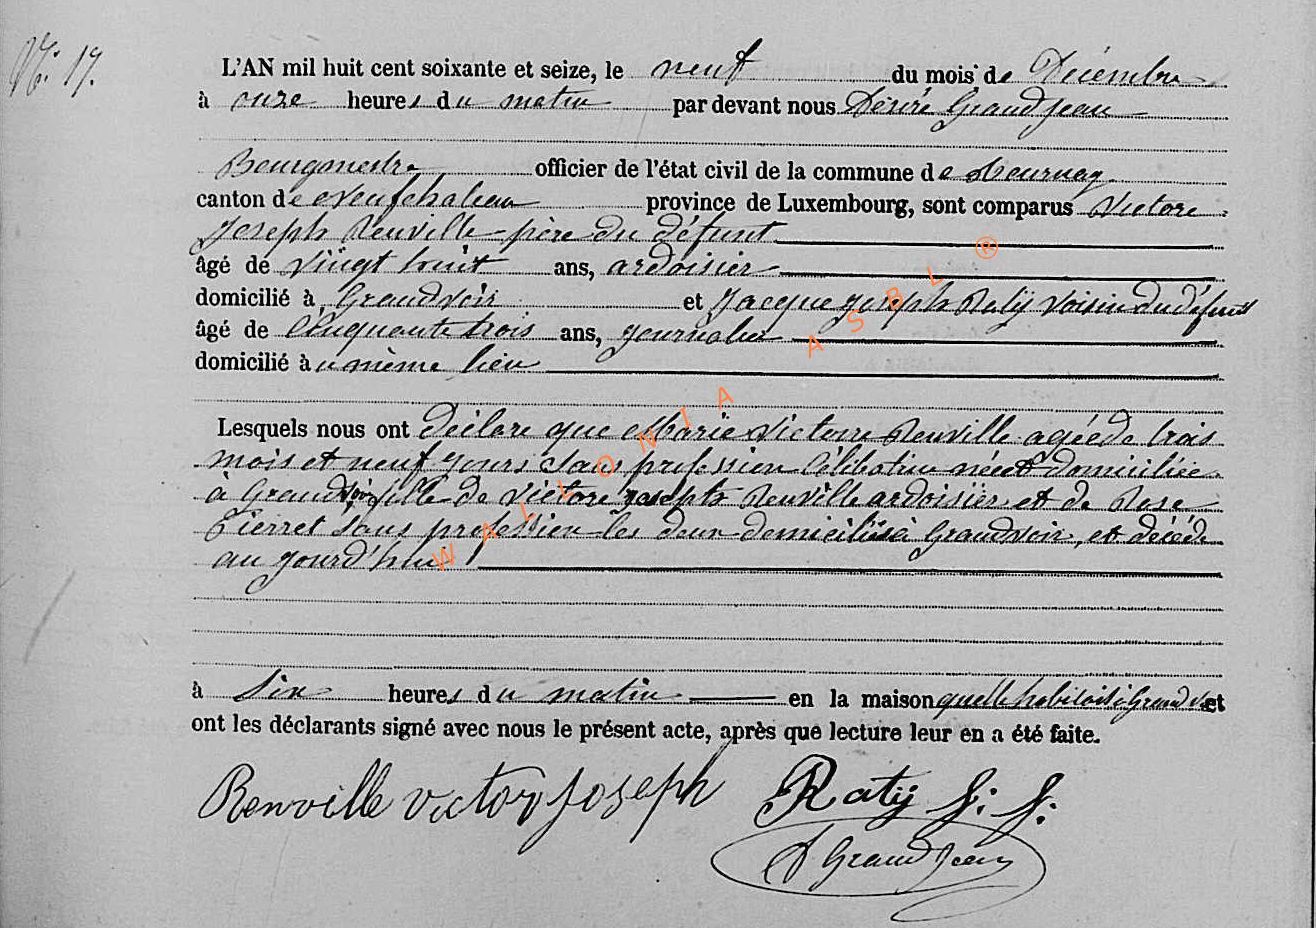 No: 17.
L'AN mil huit cent soixante et seize, le neuf du mois de Décembre
à onze heures du matin par devant nous Désiré Grandjean
Bourgmestre officier de l'état civil de la commune de
canton de Neufchateau province de Luxembourg, sont comparus Victore
Joseph Renville père du défunt
âgé de vingt huit ans, ardoisier
domicilié à Grandvoir et Jacque Joseph Raty voisin du défunt
âgé de Cinquante trois ans, journalier
domicilié au même lieu
Lesquels nous ont déclare que Marie Victoire Renville agée de trois
mois et neuf jours sans profession Célibataire née et domiciliée
à Grandvoir, fille de Victore joseph Renville ardoisier et de Rose
Pierret sans profession les deux domiciliés à Grandvoir, et décédé
au jourd'hui
à Six heures du matin en la maison quelle habitoit à Grandvoir et
ont les déclarants signé avec nous le présent acte, après que lecture leur en a été faite.
Renville victor joseph Raty J: J:
D Grandjean
WALLONIA ASBL ®